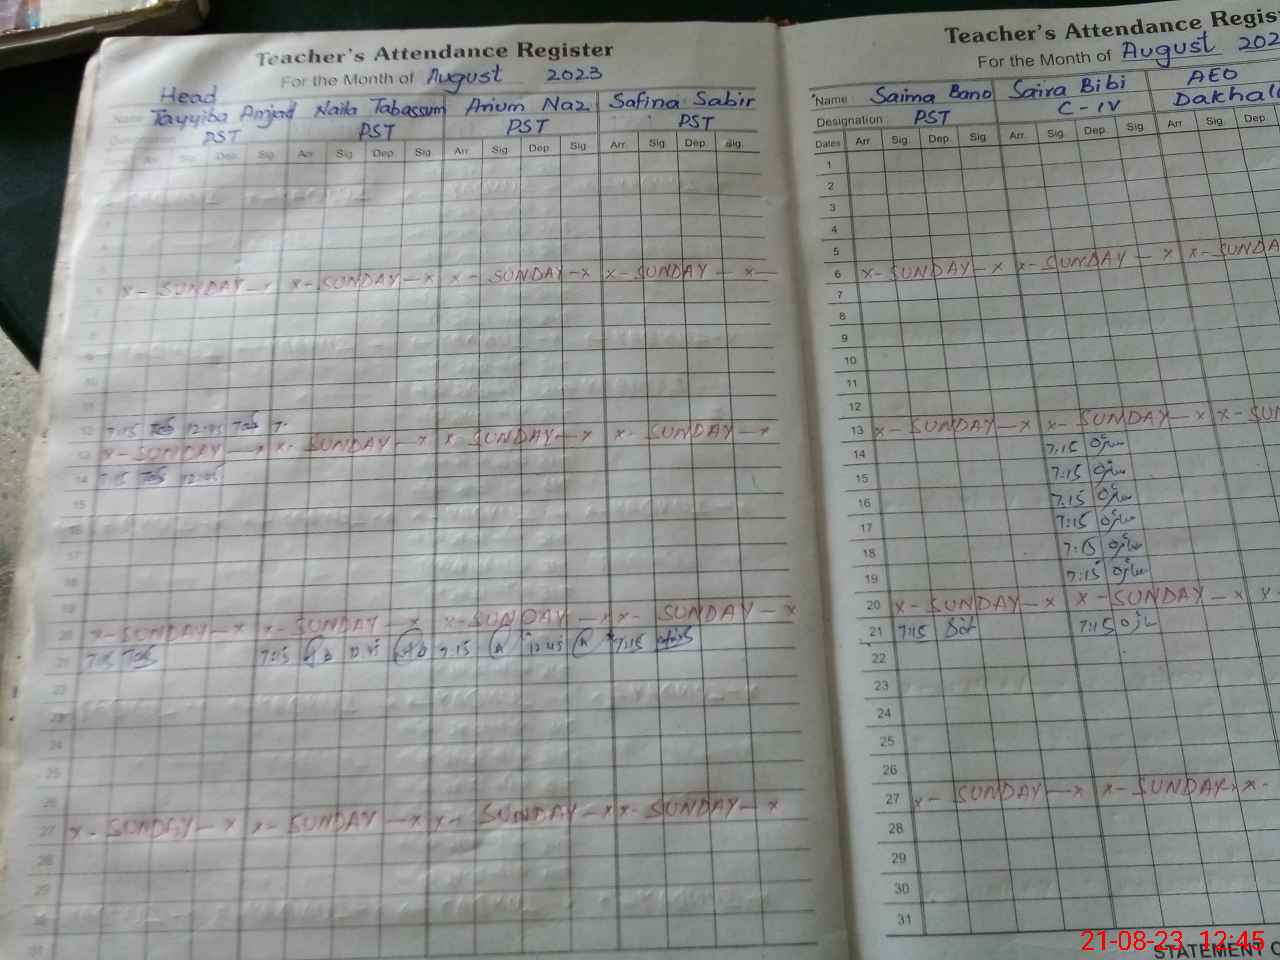 Teacher's Attendance Register
For the Month of August 2023
Head
Name Tayyiba Amjad Naila Tabassum Anum Naz Safina Sabir
PST PST PST PST
Arr. Sig. Dep. Sig. Arr. Sig. Dep. Sig. Arr. Sig. Dep. Sig. Arr. Sig. Dep. Sig.
x - SUNDAY - x x - SUNDAY - x x - SUNDAY - x x - SUNDAY - x
12 7:15 12:45
13 x - SUNDAY - x x - SUNDAY - x x - SUNDAY - x x - SUNDAY - x
14 7:15 12:45
15
16
17
18
19
20 x - SUNDAY - x x - SUNDAY - x x - SUNDAY - x x - SUNDAY - x
21 7:15 7:15 7:15 12:45 7:15
22
23
24
25
26
27 x - SUNDAY - x x - SUNDAY - x x - SUNDAY - x x - SUNDAY - x
28
29
30
31
Teacher's Attendance Regis
For the Month of August 202
Name : Saima Bano Saira Bibi AEO
Designation PST C-IV Dakhal
Dates Arr. Sig. Dep. Sig. Arr. Sig. Dep. Sig. Arr. Sig. Dep.
1
2
3
4
5
6 x - SUNDAY - x x - SUNDAY - x x - SUNDA
7
8
9
10
11
12
13 x - SUNDAY - x x - SUNDAY - x x - SUN
14 7:15
15 7:15
16 7:15
17 7:15
18 7:15
19 7:15
20 x - SUNDAY - x x - SUNDAY - x x -
21 7:15 7:15
22
23
24
25
26
27 x - SUNDAY - x x - SUNDAY - x x -
28
29
30
31
STATEMENT O
21-08-23 12:45